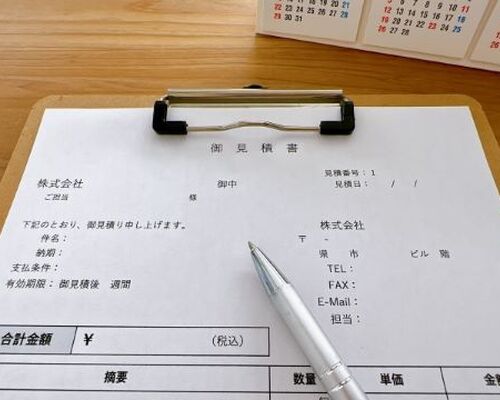 15 16 17 18 19 20 21
22 23 24 25 26 27 28
29 30 31
5 6 7 8 9 10 11
12 13 14 15 16 17 18
19 20 21 22 23 24 25
26 27 28
御見積書
見積番号：1
見積日： / /
株式会社 御中
ご担当 様
下記のとおり、御見積り申し上げます。
件名：
納期：
支払条件：
有効期限：御見積後 週間
株式会社
〒 -
県 市 ビル 階
TEL：
FAX：
E-Mail：
担当：
合計金額 ¥ （税込）
摘要 数量 単価